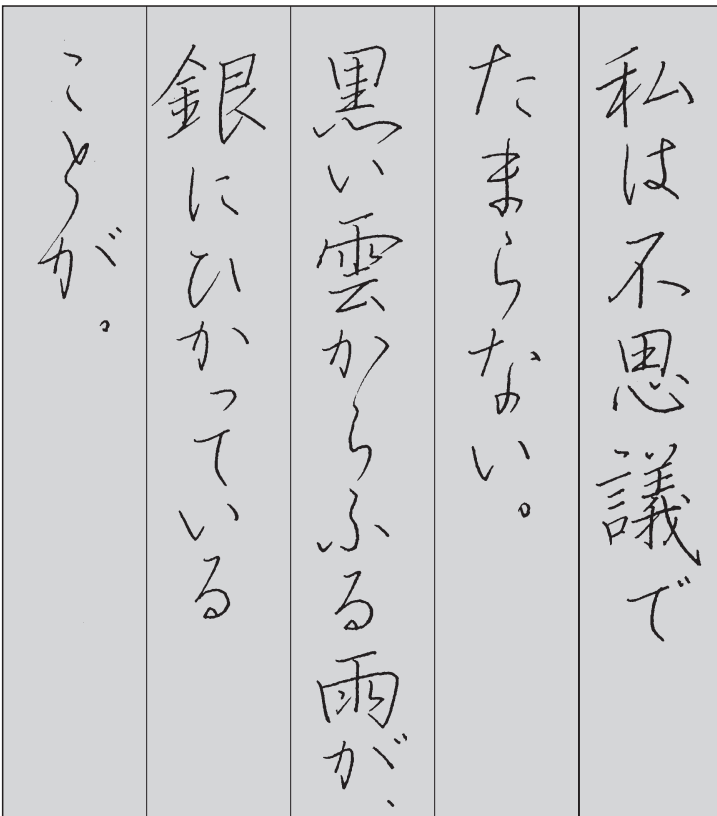 私は不思議で
たまらない。
黒い雲からふる雨が、
銀にひかっている
ことが。